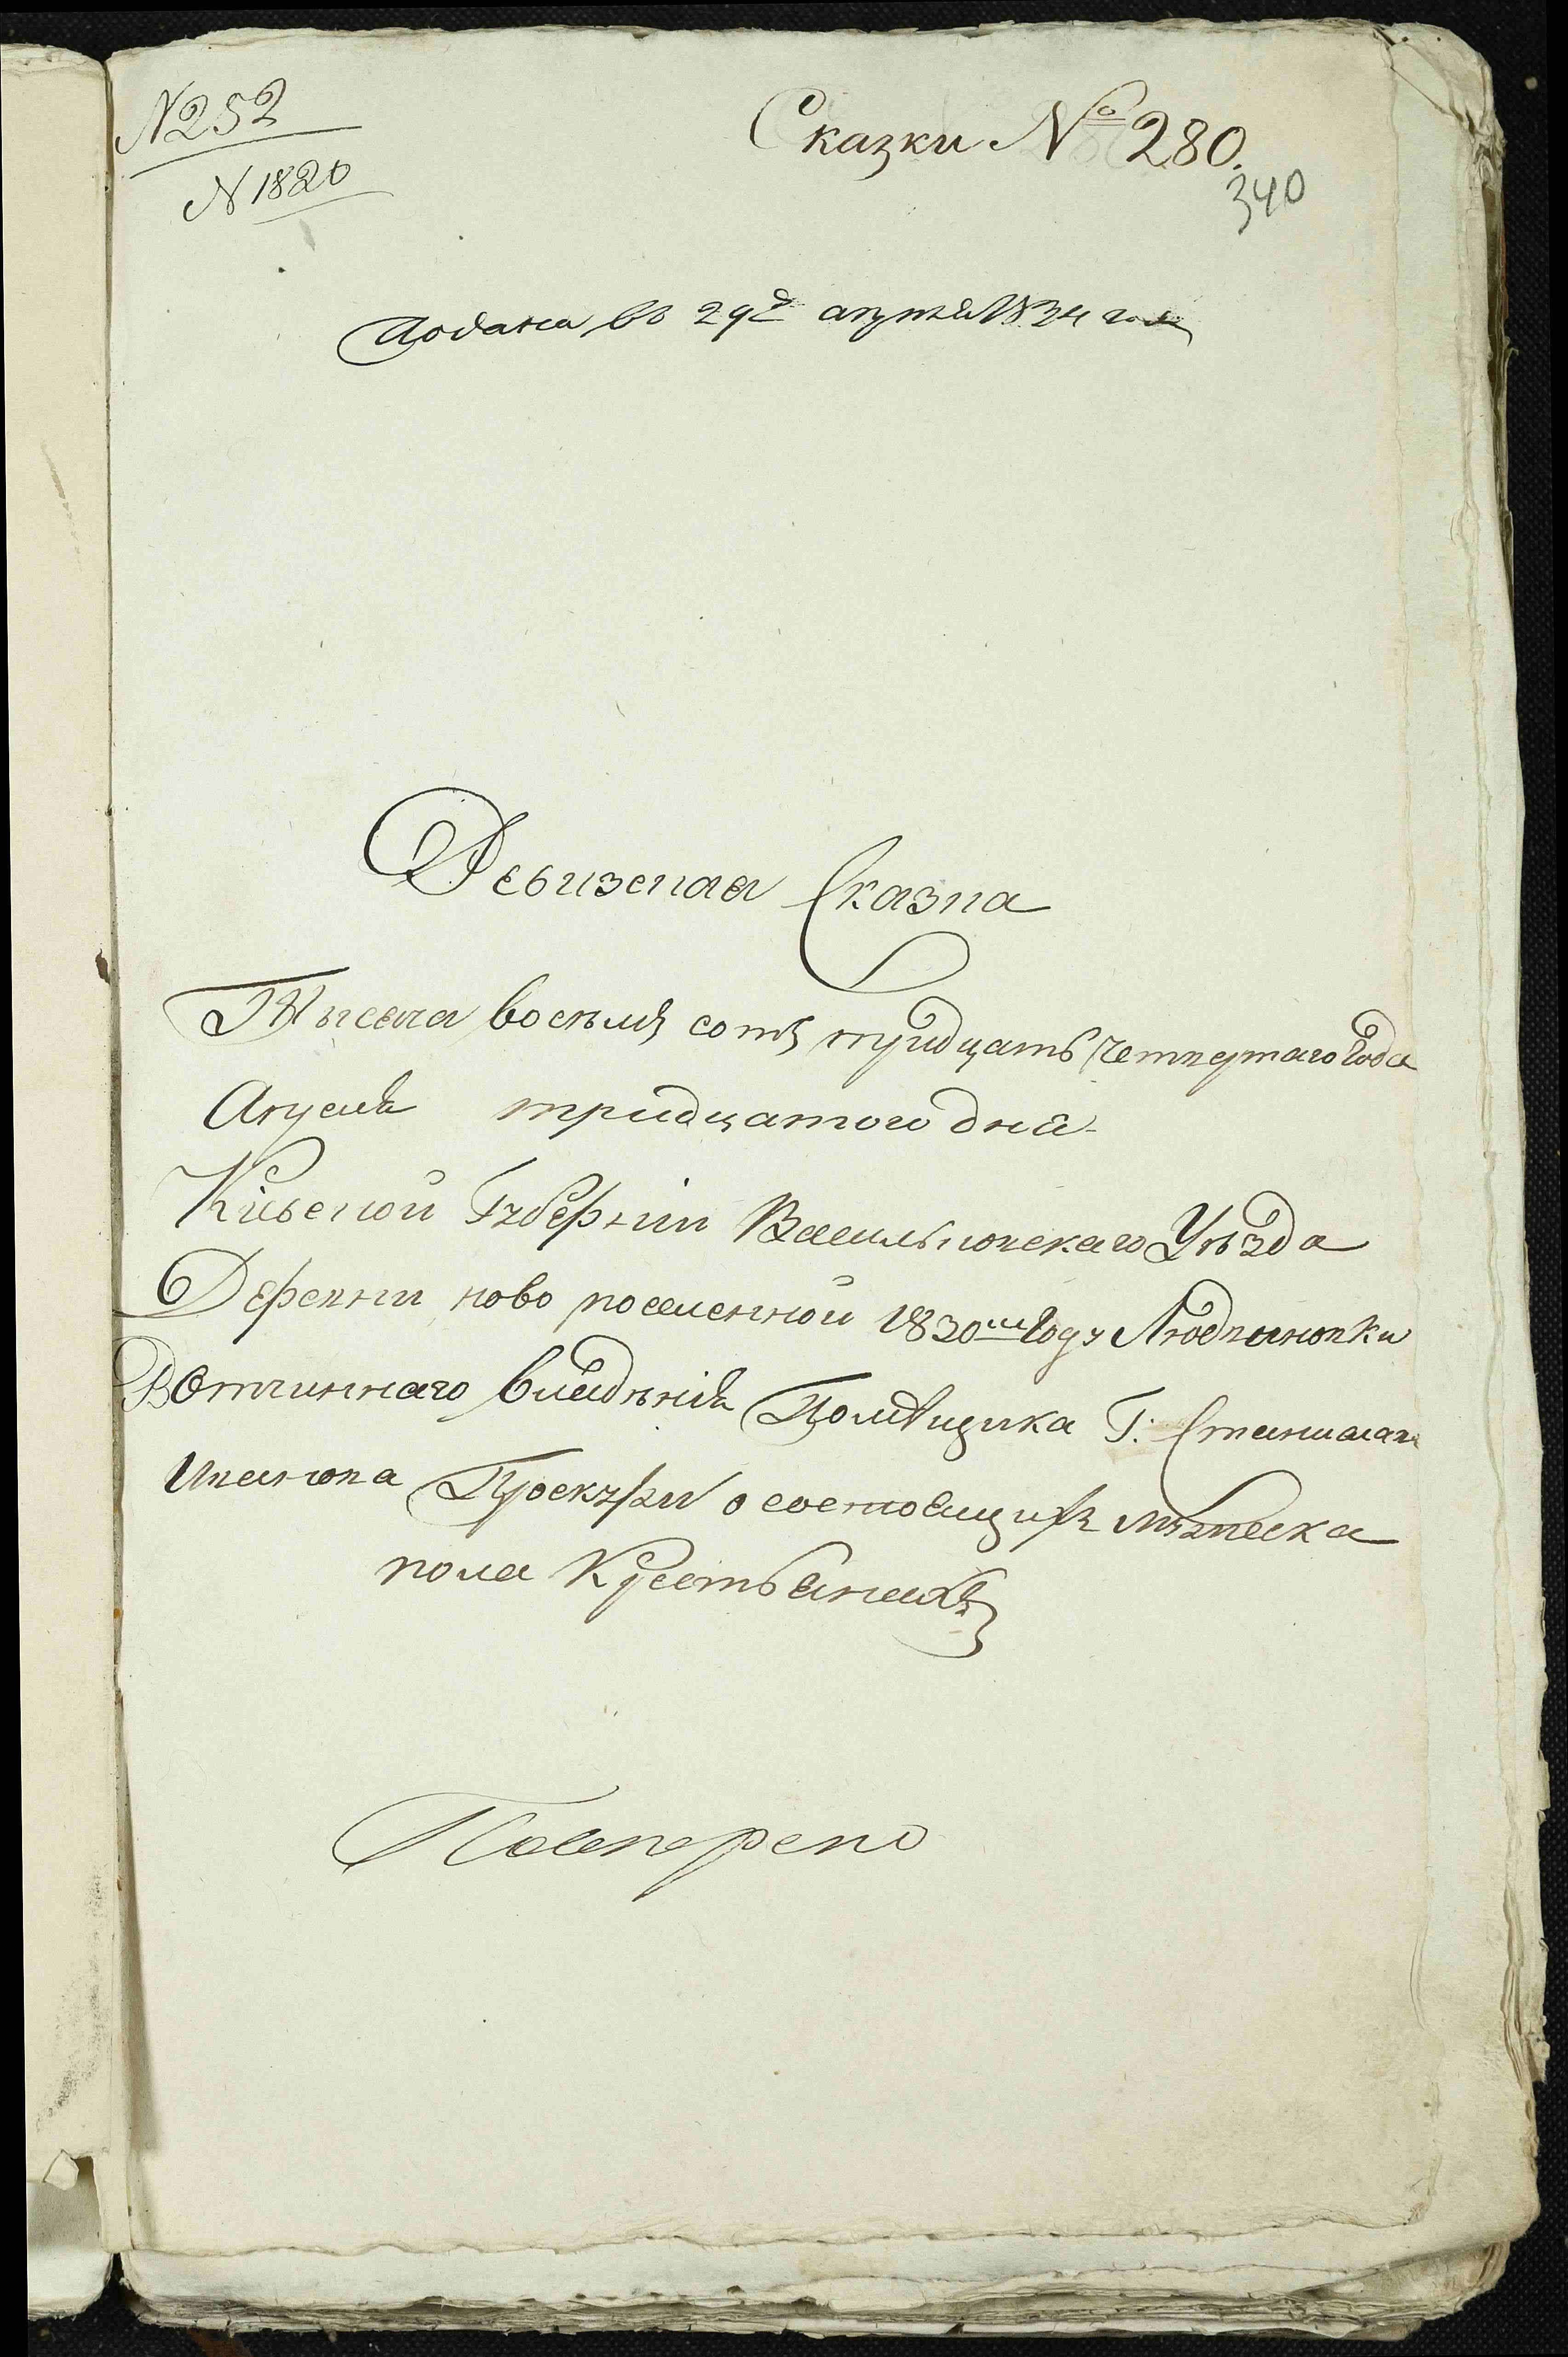 N 252
N 1820
Сказки № 280.
340
Подана въ 29 д апреля 1834 года
Ревизская Сказка
Тысяча восемъ сотъ тридцать Четвертаго Года
Апреля тридцатого дня
Кіевской Губерніи Васильковскаго Уѣзда
Деревни ново поселенной 1830 Году Людвиновки
Вотчиннаго владѣнія Помѣщика Г: Станислава
Иванова Проскури о состоящихъ мужеска
пола Крестьянахъ